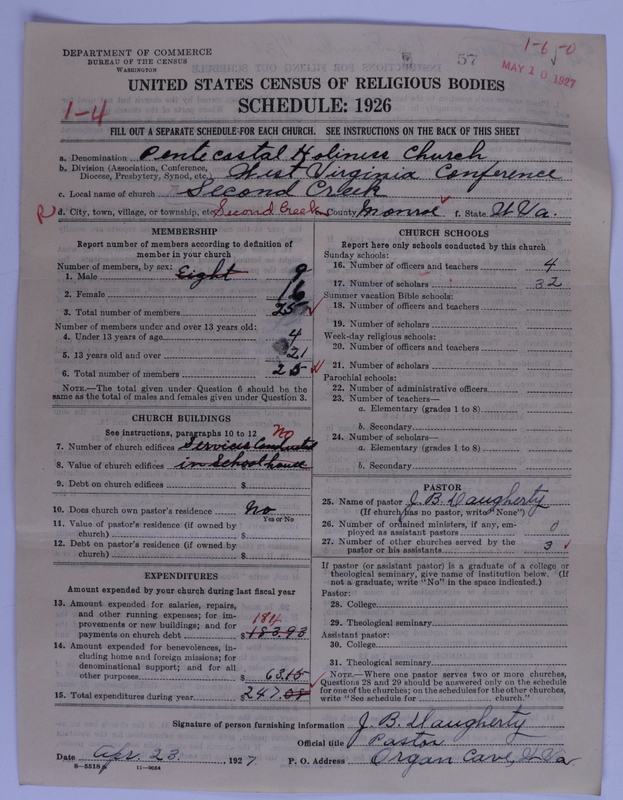 DEPARTMENT OF COMMERCE
BUREAU OF THE CENSUS
WASHINGTON
57
1-6 50
MAY 10 1927
UNITED STATES CENSUS OF RELIGIOUS BODIES
SCHEDULE: 1926
1-4
FILL OUT A SEPARATE SCHEDULE FOR EACH CHURCH. SEE INSTRUCTIONS ON THE BACK OF THIS SHEET
a. Denomination Pentecostal Holiness Church
b. Division (Association, Conference, Diocese, Presbytery, Synod, etc.) West Virginia Conference
c. Local name of church Second Creek
R d. City, town, village, or township, etc. Second Creek e. County Monroe f. State W Va.
MEMBERSHIP
Report number of members according to definition of
member in your church
Number of members, by sex:
1. Male Eight 9
2. Female 16
3. Total number of members 25
Number of members under and over 13 years old:
4. Under 13 years of age 4
5. 13 years old and over 21
6. Total number of members 25
NOTE.—The total given under Question 6 should be
same as the total of males and females given under Question 3.
CHURCH BUILDINGS
See instructions, paragraphs 10 to 12 No
7. Number of church edifices Services Conducted
8. Value of church edifices in School house
9. Debt on church edifices $
10. Does church own pastor's residence No
Yes or No
11. Value of pastor's residence (if owned by
church) $
12. Debt on pastor's residence (if owned by
church) $
EXPENDITURES
Amount expended by your church during last fiscal year
13. Amount expended for salaries, repairs,
and other running expenses; for im-
provements or new buildings; and for 184
payments on church debt $183.93
14. Amount expended for benevolences, in-
cluding home and foreign missions; for
denominational support; and for all
other purposes $ 63.15
15. Total expenditures during year $ 247.08
CHURCH SCHOOLS
Report here only schools conducted by this church
Sunday schools:
16. Number of officers and teachers 4
17. Number of scholars 32
Summer vacation Bible schools:
18. Number of officers and teachers
19. Number of scholars
Week-day religious schools:
20. Number of officers and teachers
21. Number of scholars
Parochial schools:
22. Number of administrative officers
23. Number of teachers—
a. Elementary (grades 1 to 8)
b. Secondary
24. Number of scholars—
a. Elementary (grades 1 to 8)
b. Secondary
PASTOR
25. Name of pastor J. B. Daugherty
(If church has no pastor, write "None")
26. Number of ordained ministers, if any, em-
ployed as assistant pastors 0
27. Number of other churches served by the
pastor or his assistants 3
If pastor (or assistant pastor) is a graduate of a college or
theological seminary, give name of institution below. (If
not a graduate, write "No" in the space indicated.)
Pastor:
28. College
29. Theological seminary
Assistant pastor:
30. College
31. Theological seminary
NOTE.—Where one pastor serves two or more churches,
Questions 28 and 29 should be answered only on the schedule
for one of the churches; on the schedules for the other churches,
write "See schedule for church."
Signature of person furnishing information J. B. Daugherty
Official title Pastor
Date Apr. 23, 1927 P. O. Address Organ Cave, W Va
8-5518 11-9034